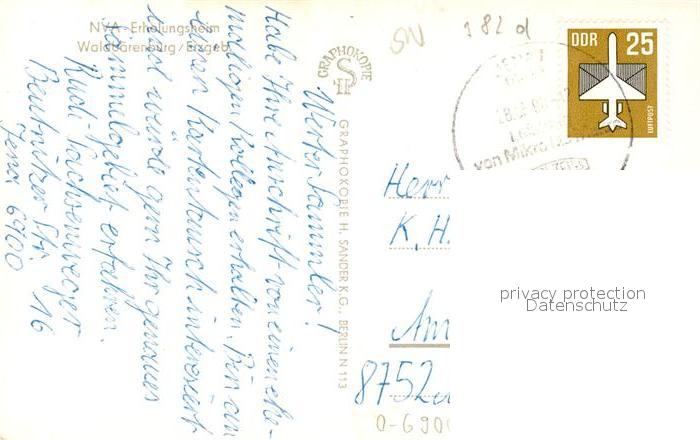 NVA-Erholungsheim
Waldbärenburg/Erzgeb.
Werter Sammler!
Habe Ihre Anschrift von einem ehe-
maligen Kollegen erhalten. Bin an
einem Kartentausch interessiert
und würde gern Ihr genaues
Sammelgebiet erfahren.
Rudi
Str. 16
Jena 6900
GRAPHOKOPIE
GRAPHOKOPIE H. SANDER K.G., BERLIN N 113
SN
182 d
DDR 25
LUFTPOST
von Mikro
Herr
K. H.
8752
O-690
privacy protection
Datenschutz